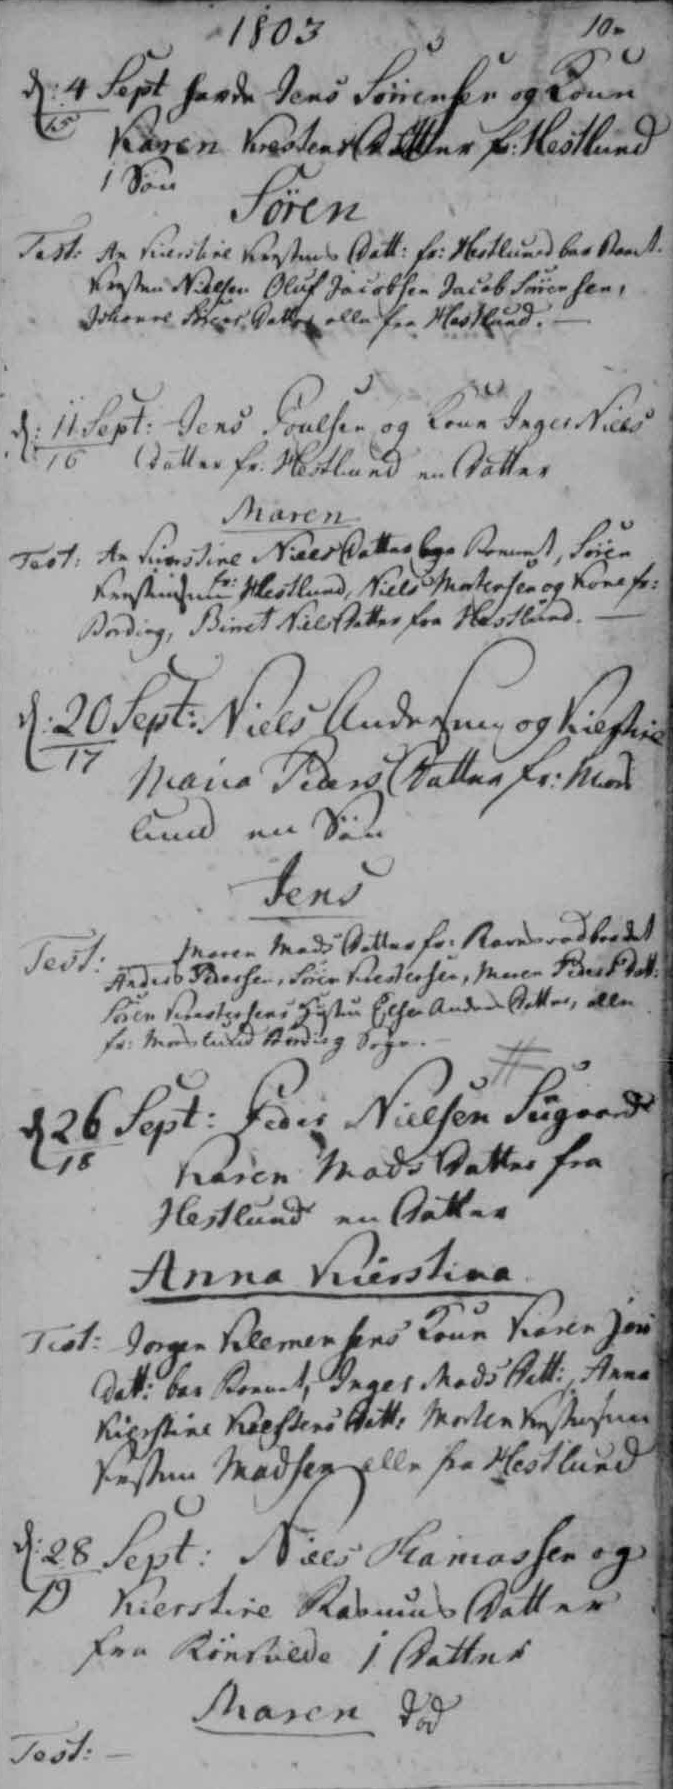 1803 10
d: 4 Sept havde Jens Sörensen og Koun
15
Karen Krestens Datter fr: Hestlund
1 Sön
Sören
Test: An Kierstine Krestens Datt: fr: Hestlund bar Barnet.
Kresten Nielsen Oluf Jacobsen Jacob Sörensen,
Johanne Datter alle fra Hestlund. —
d: 11 Sept: Jens Poulsen og Koun Inger Niels
16 Datter fr. Hestlund en Datter
Maren
Test: An Kierstine Niels Datter bar Barnet, Sören
fr: Hestlund, Niels Mortensen og Kone fr:
Bording, Birret Niels Datter fra Hestlund. —
d: 20 Sept: Niels Andersen og Kierstine
17
Maria Peders Datter fr: Mors
lund en Sön
Jens
Test: Maren Mads Datter fr:
Anders Pedersen, Sören Krestensen, Maren Peders Datt:
Sören Krestensens Hustru Else Anders Datter, alle
fr: Morslund Bording Sogn. —
d 26 Sept: Peder Nielsen Sugaard
18
Karen Mads Datter fra
Hestlund en Datter
Anna Kierstina
Test: Jorgen Klemensens Koun Karen Jens
Datt: bar Barnet, Inger Mads Datt:, Anna
Kierstine Krestens Datt: Morten Krestensen
Kresten Madsen alle fra Hestlund
d: 28 Sept: Niels Thamassen og
19 Kierstine Rasmus Datter
fra 1 Datter
Maren död
Test: —